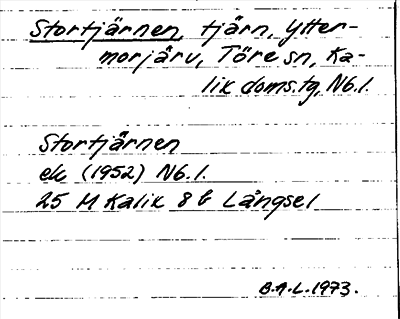 Stortjärnen, tjärn, Ytter-
morjärv, Töre sn, Ka-
lix doms.tg, Nb.l.
Stortjärnen
ek (1952) Nb.l.
25 M Kalix 8 b Långsel
B.A.L.1973.